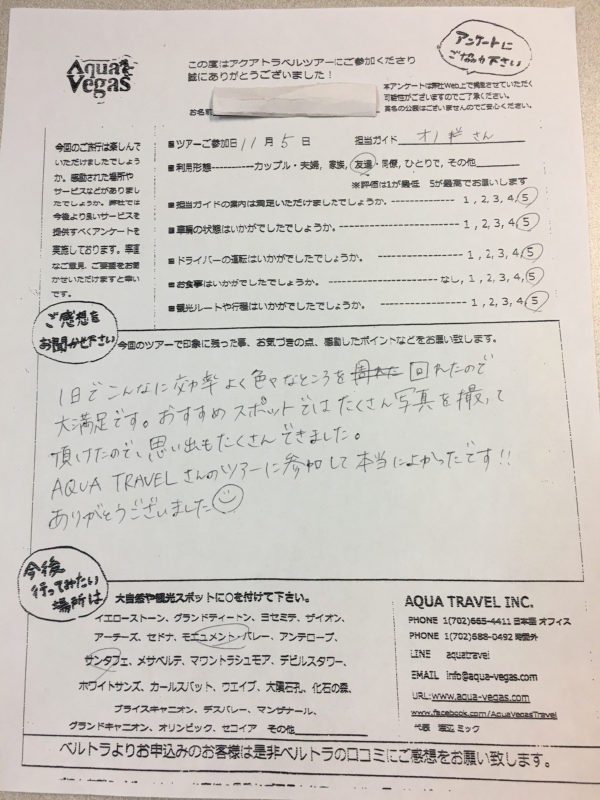 Aqua Vegas
この度はアクアトラベルツアーにご参加くださり
誠にありがとうございました！
アンケートに
ご協力下さい
本アンケートは弊社Web上で掲載させていただく
可能性がございますのでご了承ください。
実名の公表はございませんのでご安心ください。
お名前
今回のご旅行は楽しんで
いただけましたでしょう
か。感動された場所や
サービスなどがありまし
たでしょうか。弊社では
今後より良いサービスを
提供すべくアンケートを
実施しております。率直
なご意見、ご要望をお聞
かせいただけますと幸い
です。
■ツアーご参加日 11月 5 日 担当ガイド さん
■利用形態-----------カップル・夫婦, 家族, 友達・同僚, ひとりで, その他
※評価は1が最低 5が最高でお願いします
■担当ガイドの案内は満足いただけましたでしょうか。---------- 1, 2, 3, 4, 5
■車輛の状態はいかがでしたでしょうか。---------------------- 1, 2, 3, 4, 5
■ドライバーの運転はいかがでしたでしょうか。 ---------------- 1, 2, 3, 4, 5
■お食事はいかがでしたでしょうか。 -------------------- なし, 1, 2, 3, 4, 5
■観光ルートや行程はいかがでしたでしょうか。---------------- 1, 2, 3, 4, 5
ご感想を
お聞かせ下さい
今回のツアーで印象に残った事、お気づきの点、感動したポイントなどをお願い致します。
1日でこんなに効率よく色々なところを回れたので
大満足です。おすすめスポットではたくさん写真を撮って
頂けたので、思い出もたくさんできました。
AQUA TRAVELさんのツアーに参加して本当によかったです!!
ありがとうございました
今後
行ってみたい
場所は
大自然や観光スポットに○を付けて下さい。
イエローストーン、グランドティートン、ヨセミテ、ザイオン、
アーチーズ、セドナ、モニュメント・バレー、アンテロープ、
サンタフェ、メサベルデ、マウントラシュモア、デビルスタワー、
ホワイトサンズ、カールスバット、ウエイブ、大隕石孔、化石の森、
ブライスキャニオン、デスバレー、マンザナール、
グランドキャニオン、オリンピック、セコイア その他
AQUA TRAVEL INC.
PHONE 1(702)665-4411 日本語 オフィス
PHONE 1(702)688-0492 時間外
LINE aquatravel
EMAIL info@aqua-vegas.com
URL:www.aqua-vegas.com
www.facebook.com/AquaVegasTravel
代表 渡辺 ミック
ベルトラよりお申込みのお客様は是非ベルトラの口コミにご感想をお願い致します。